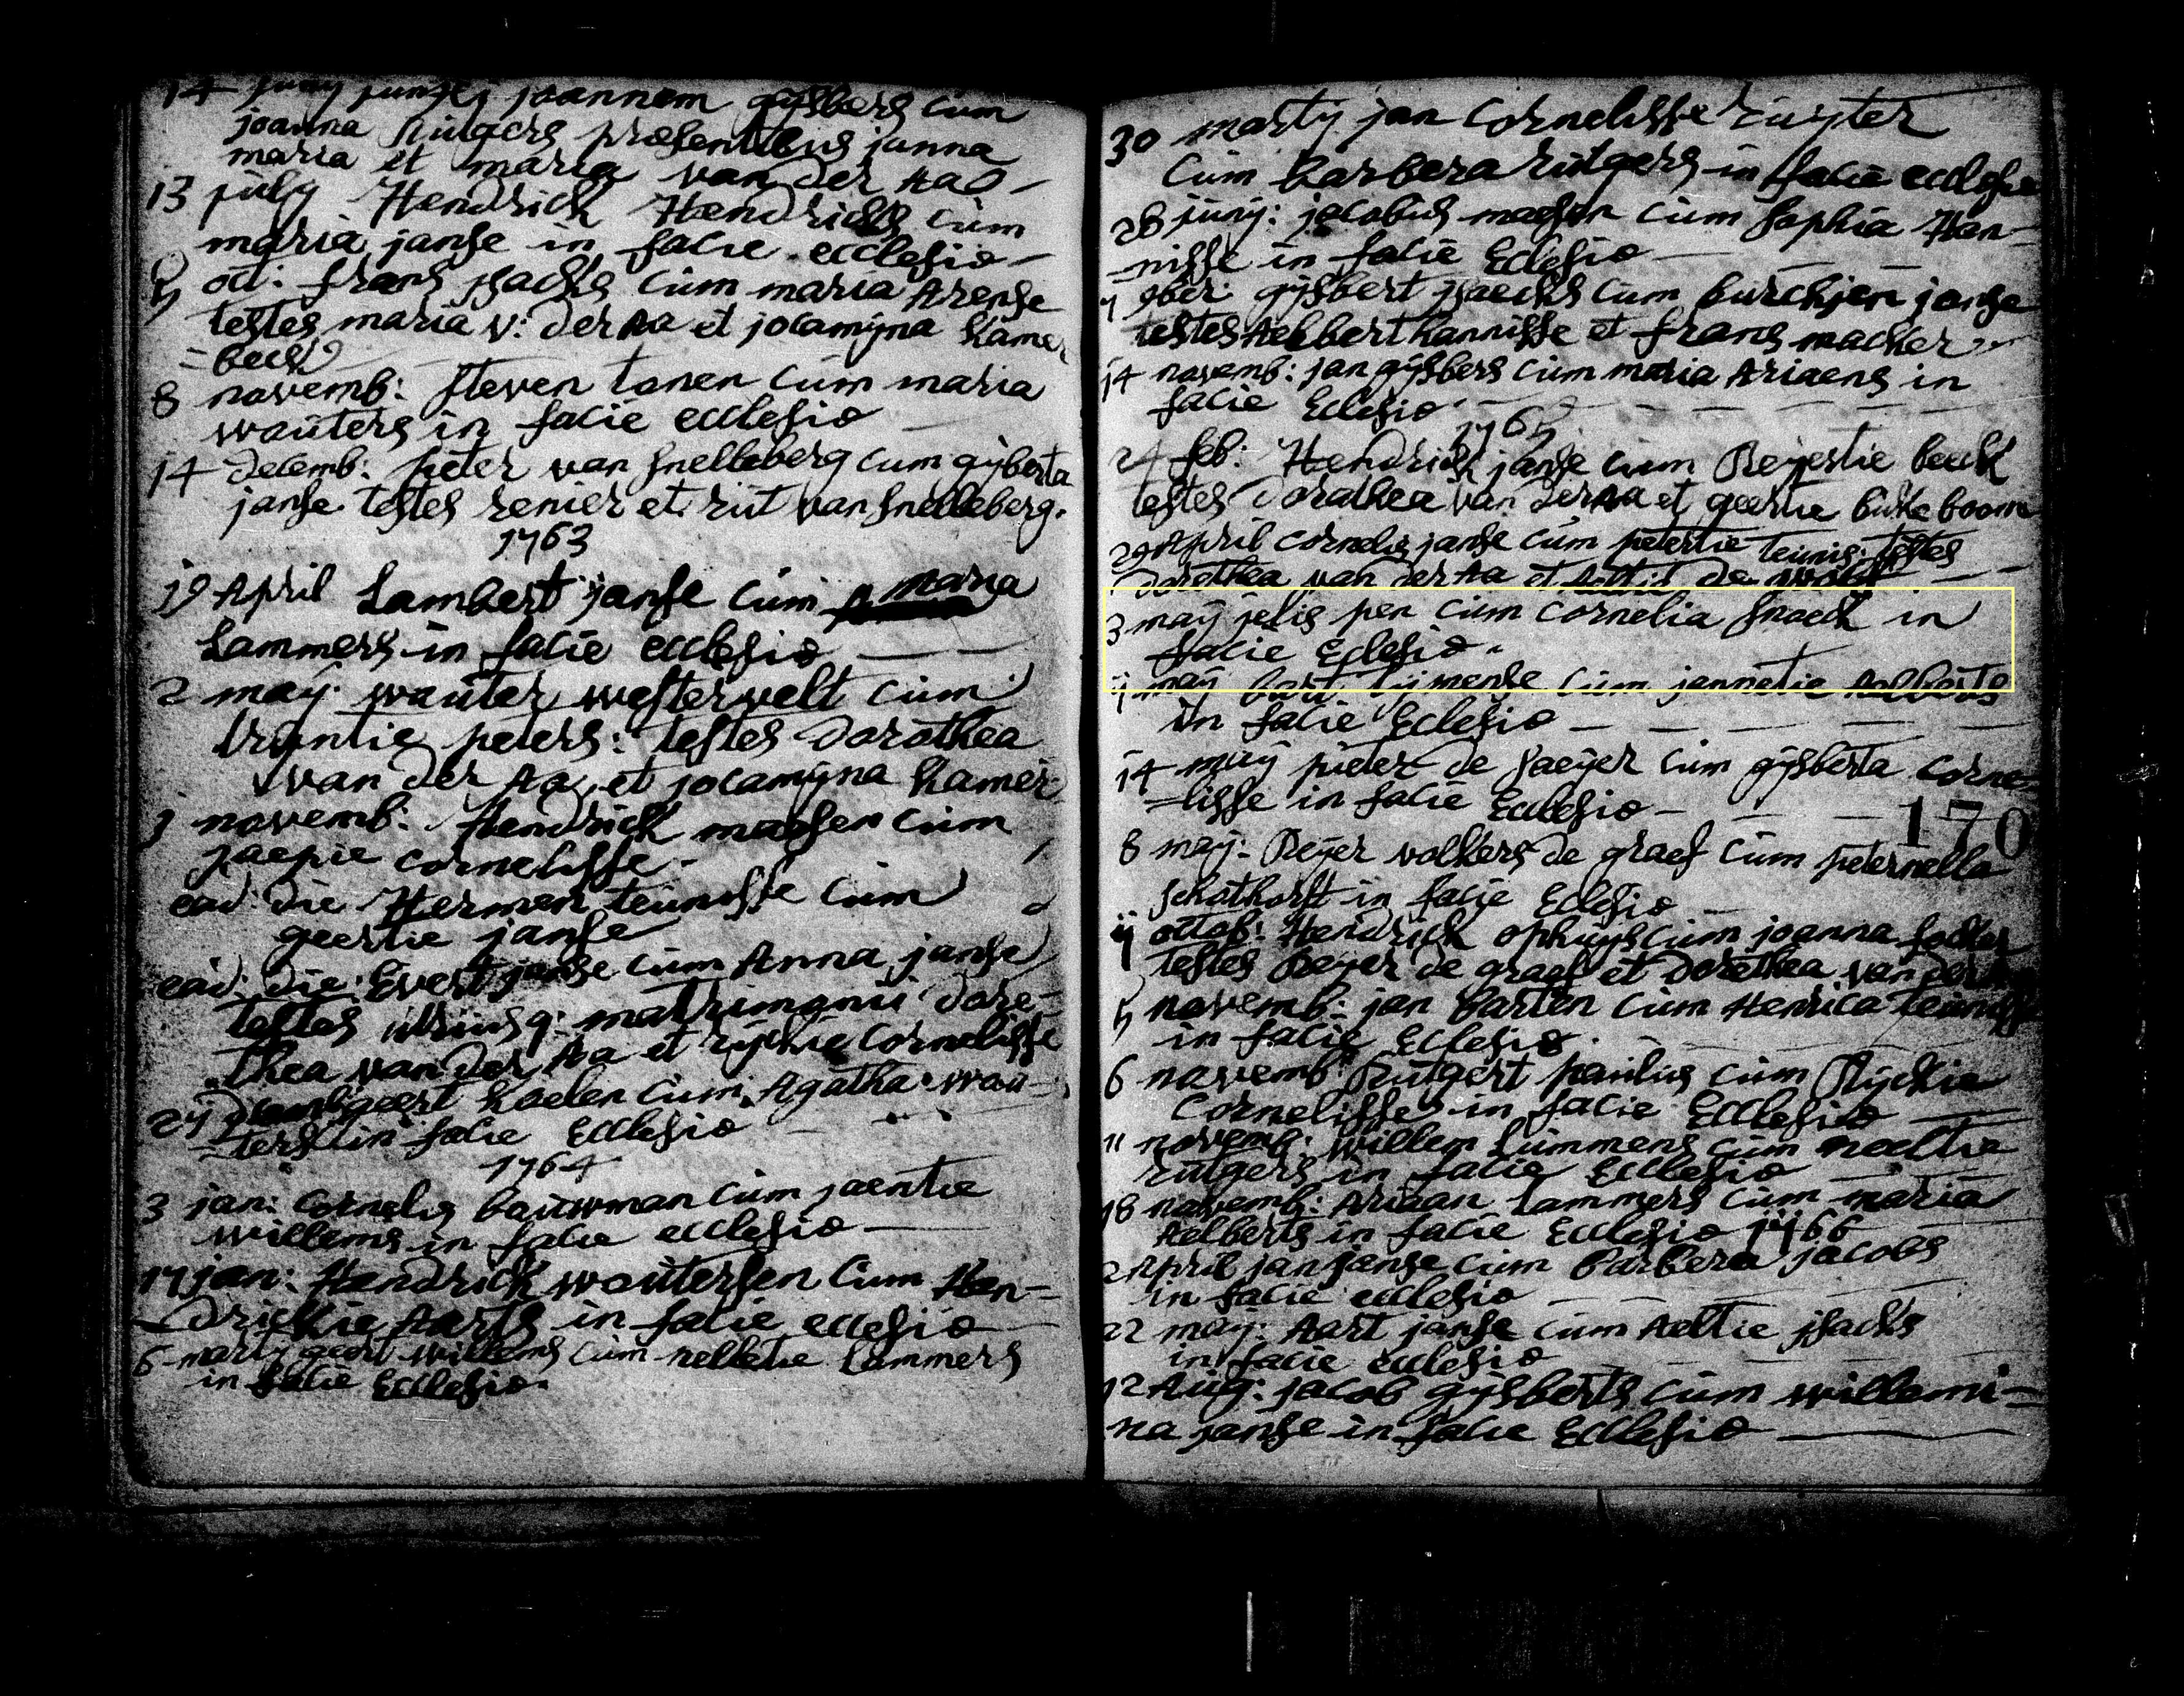 14 juny junxi joannem gijsbers cum
joanna Rutgers præsentibus janna
maria et maria van der Aa
13 july Hendrick Hendricks cum
maria janse in facie ecclesiæ
5 oct: frans jsacks cum maria Arense
testes maria v: der Aa et jocamijna hamer
=beeck
8 novemb: steven tonen cum maria
wouters in facie ecclesiæ
14 decemb: pieter van snelleberg cum gijberta
janse testes renier et rut van snelleberg.
1763
19 April Lambert janse cum maria
Lammers in facie ecclesiæ
2 maÿ wouter westerwelt cum
truntie peters: testes Dorothea
van der Aa et jocamijna hamer
novemb: Hendrick maesen cum
jaepie cornelisse
ead: die Hermen teunisse cum
geertie janse
ead: die: Evert janse cum Anna janse
testes utriusq: matrimonii Dore=
thea van der Aa et rijckie Cornelisse
geert koelen cum Agatha wou=
=ters in facie Ecclesiæ
1764
3 jan: cornelis bouwman cum jaentie
willems in facie ecclesiæ
17 jan: Hendrick woutersen cum Hen=
drickie Aarts in facie ecclesiæ
6 marty geert willems cum nelletie Lammers
in facie Ecclesiæ.
30 martij jan Cornelisse ruijter
cum barbera rutgers in facie ecclesiæ
28 junij: jacobus maesen cum sophia Han=
=nisse in facie Eclesiæ
7 9ber gijsbert jsaecks cum burchjen janse
testes Aelbert hannisse et frans macker
14 novemb: jan gijsbers cum maria Ariaens in
facie Eclesiæ
1765
24 feb: Hendrick janse cum Reijestie beeck
testes Dorathea van der Aa et geertie bukeboom
29 April cornelis janse cum petertie teunis: testes
Dorethea van der Aa et Aeltie de
3 maÿ jelis pen cum cornelia snoeck in
facie Eclesiæ
maÿ bart tijmense cum jannetie Aelberts
in facie Eclesiæ
14 maÿ pieter de saeijer cum gijsberta corne=
=lisse in facie Ecclesiæ
170
8 maÿ: Reijer volkers de graef cum peternella
schothorst in facie Eclesiæ
octob: Hendrick ophuijs cum joanna
testes Reijer de graef et Dorethea van der
5 novemb: jan barten cum Henrica teunisse
in facie Eclesiæ
6 novemb: Rutgert paulus cum Rijckie
Cornelisse in facie Ecclesiæ
11 novemb: willem Lummens cum neeltie
rutgers in facie Ecclesiæ
18 novemb: Ariaan Lammers cum maria
Aelberts in facie Ecclesiæ 1766
2 April jan janse cum barbera jacobs
in facie ecclesiæ
22 maÿ: Aart janse cum Aeltie jsacks
in facie ecclesiæ
12 Aug: jacob gijsberts cum willemi=
na janse in facie Ecclesiæ